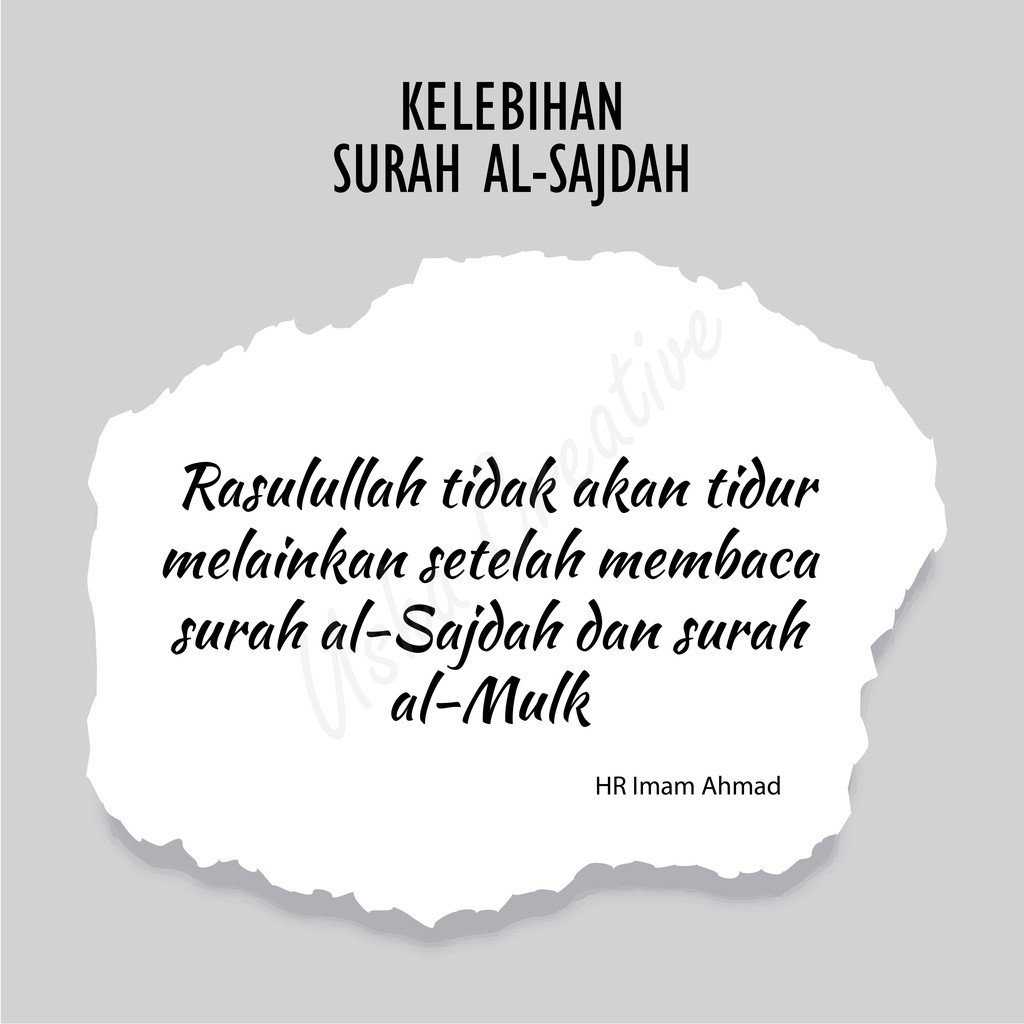 KELEBIHAN
SURAH AL-SAJDAH
Rasulullah tidak akan tidur
melainkan setelah membaca
surah al-Sajdah dan surah
al-Mulk
HR Imam Ahmad
Creative